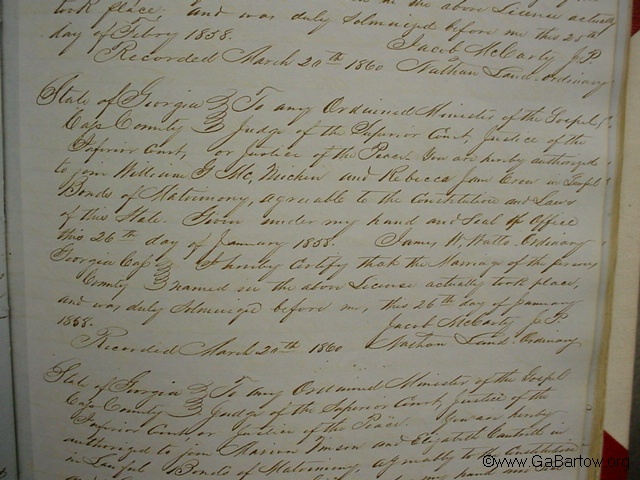 the above License actually
took place, and was duly Solmnized before me this 25th
day of Febry 1858. Jacob McCarty J.P.
Recorded March 20th 1860 Nathan Land ordinary
State of Georgia } To any Ordained Minister of the Gospel
Cass County } Judge of the Superior Court, Justice of the
Inferior Court, or Justice of the Peace. You are hereby authorized
to join William G and Rebecca Jane in
Bonds of Matrimony, agreeable to the Constitution and Laws
of this State. Given under my hand and Seal of Office
this 26th day of January 1858. James W. Watts Ordinary
Georgia Cass } I hereby Certify that the Marriage of the persons
County } named in the above License actually took place,
and was duly Solmnized before me, this 26th day of January
1858. Jacob McCarty J.P.
Recorded March 20th 1860 Nathan Land Ordinary
State of Georgia } To any Ordained Minister of the Gospel
Cass County } Judge of the Superior Court, Justice of the
Inferior Court, or Justice of the Peace. You are hereby
authorized to join Marion and Elizabeth in
in Lawful Bonds of Matrimony, agreeably to the Constitution
my hand and
©www.GaBartow.org